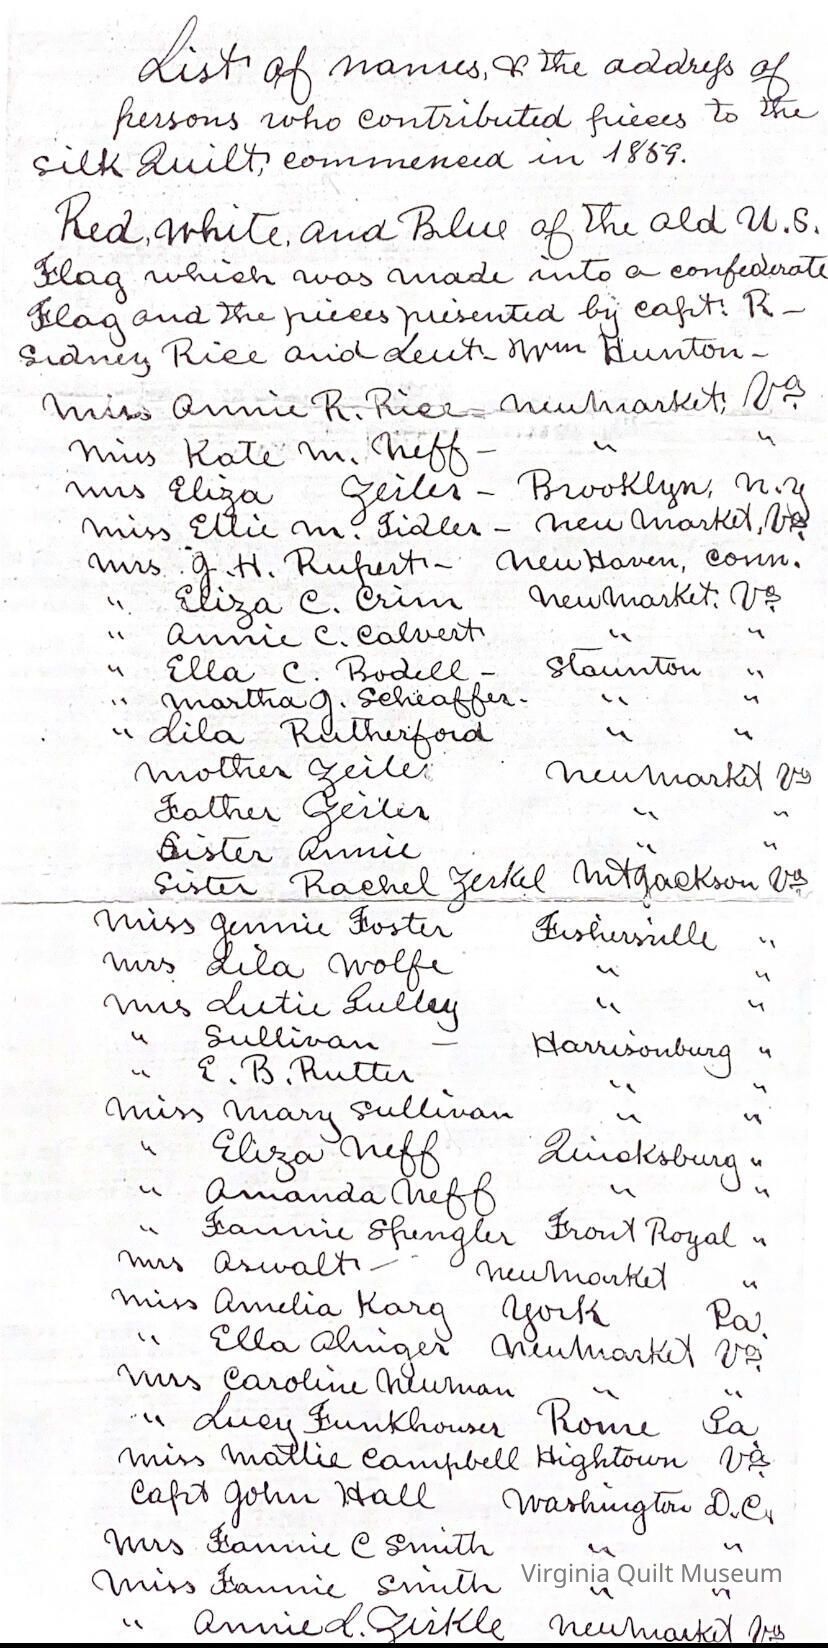 List of names, & the address of
persons who contributed pieces to the
Silk Quilt, commenced in 1859.
Red, White, and Blue of the old U.S.
Flag which was made into a confederate
Flag and the pieces presented by capt. R-
Sidney Rice and Leut- Wm Hunton-
Miss Annie R. Rice - New Market, Va
Miss Kate M. Neff - " "
Mrs Eliza Zeiler - Brooklyn, N.Y
Miss Ellie M. Fidler - New Market, Va
Mrs J. H. Rupert - New Haven, Conn.
" Eliza C. Crim New Market, Va
" Annie C. Calvert " "
" Ella C. Bodell - Staunton "
" Martha J. Scheaffer - " "
" Lila Rutherford " "
Mother Zeiler New Market Va
Father Zeiler " "
Sister Annie " "
Sister Rachel Zerkel Mt Jackson Va
Miss Jennie Foster Fishersville "
Mrs Lila Wolfe " "
Mrs Lutie Lulley " "
" Sullivan - Harrisonburg "
" E. B. Rutter " "
Miss Mary Sullivan " "
" Eliza Neff Quicksburg "
" Amanda Neff " "
" Fannie Spengler Front Royal "
Mrs Aswalt - New Market "
Miss Amelia Karg York Pa.
" Ella Olinger New Market Va
Mrs Caroline Newman " "
" Lucy Funkhouser Rome Ga
Miss Mattie Campbell Hightown Va
Capt John Hall Washington D.C.
Mrs Fannie C Smith " "
Virginia Quilt Museum
Miss Fannie Smith " "
" Annie L. Zirkle New Market Va